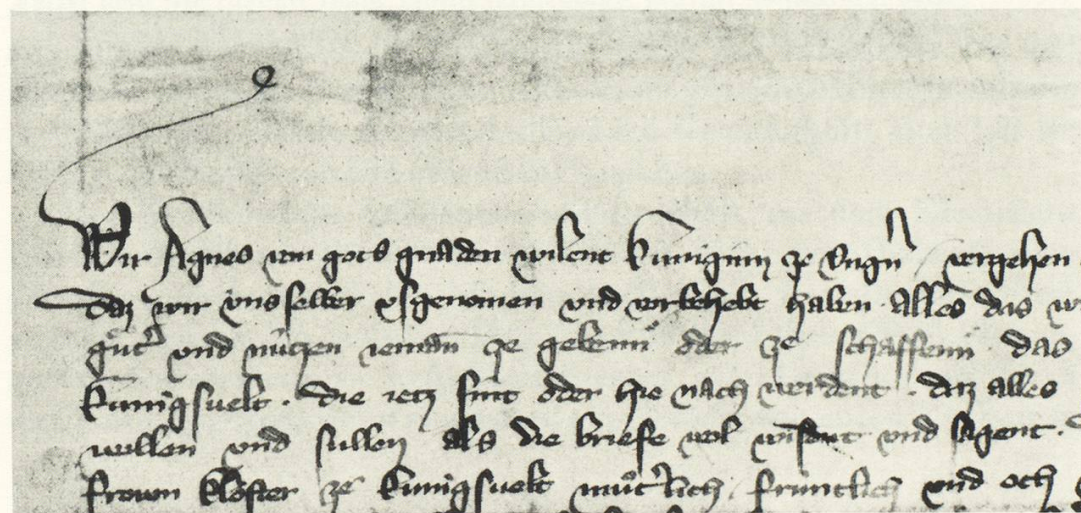 Wir Agnes von gots gnaden wilent kuniginn ze Ungern / vergehen
daz wir uns selber usgenomen und vorbehebt haben alles das
guͦter und nützen ieman ze gebenn oder ze schaffenn das
kunigsvelt . die ietz sint oder hie nach werdent . daz alles
wellen und sullen als die briefe wol wisent und sagent .
frowen kloster ze kunigsvelt muͦterlich fruntlich und och